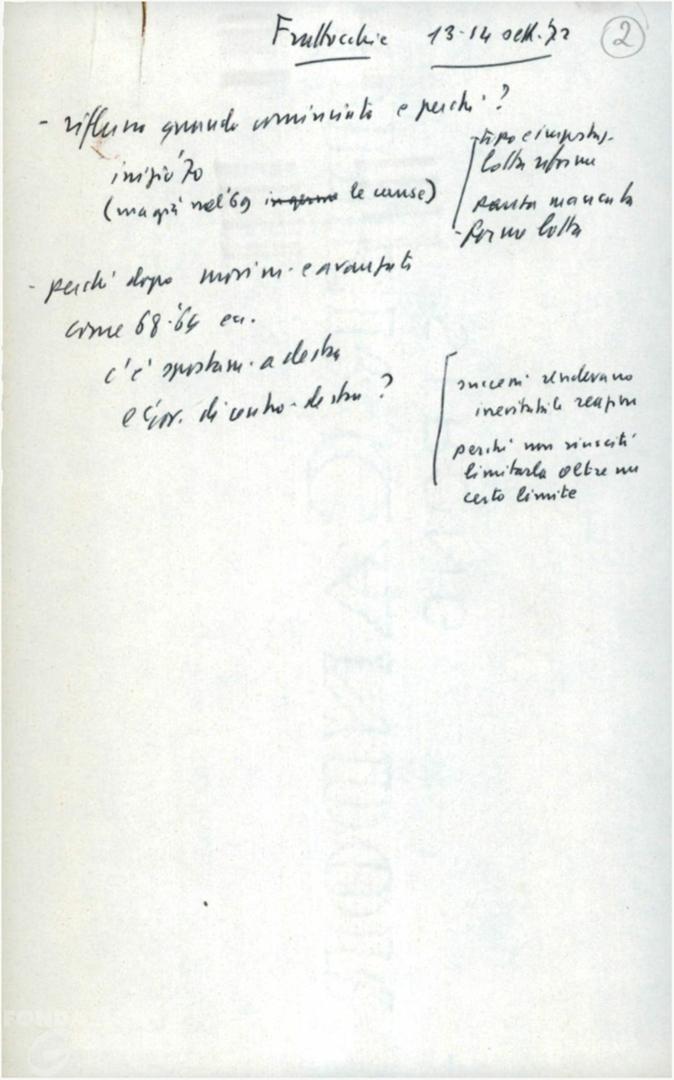 Frattocchie 13-14 sett. '72 2
- riflusso quando cominciato e perché?
inizio '70
(ma già nel '69 in germe le cause)
- tipo e impostaz.
lotta riforme
svolta mancata
- forme lotta
- perché dopo movim. e avanzati
come 68-69 ecc.
c'è spostam. a destra
e Gov. di centro-destra?
successi rendevano
inevitabile reazione
perché non riusciti
limitarla oltre un
certo limite
FONDAZIONE